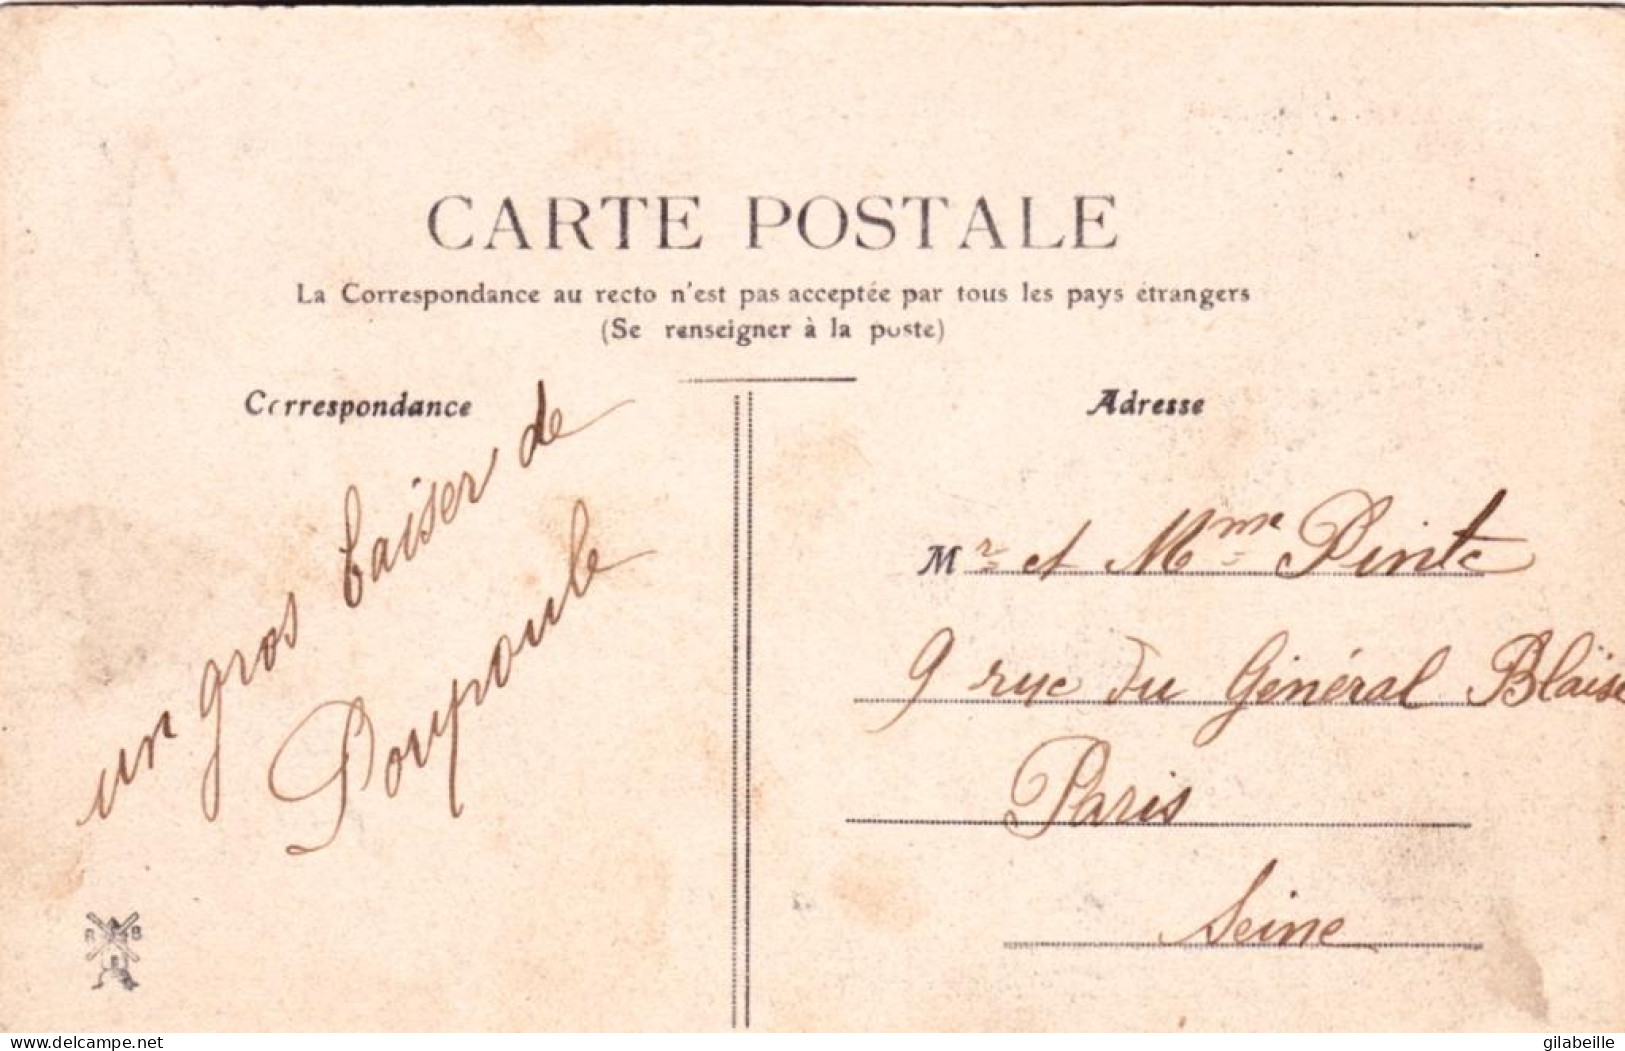 CARTE POSTALE
La Correspondance au recto n'est pas acceptée par tous les pays étrangers
(Se renseigner à la poste)
Correspondance
un gros baiser de
Poupoule
Adresse
Mr et Mme Pinte
9 rue du Général Blaïse
Paris
Seine
B B
delcampe.net
gilabeille